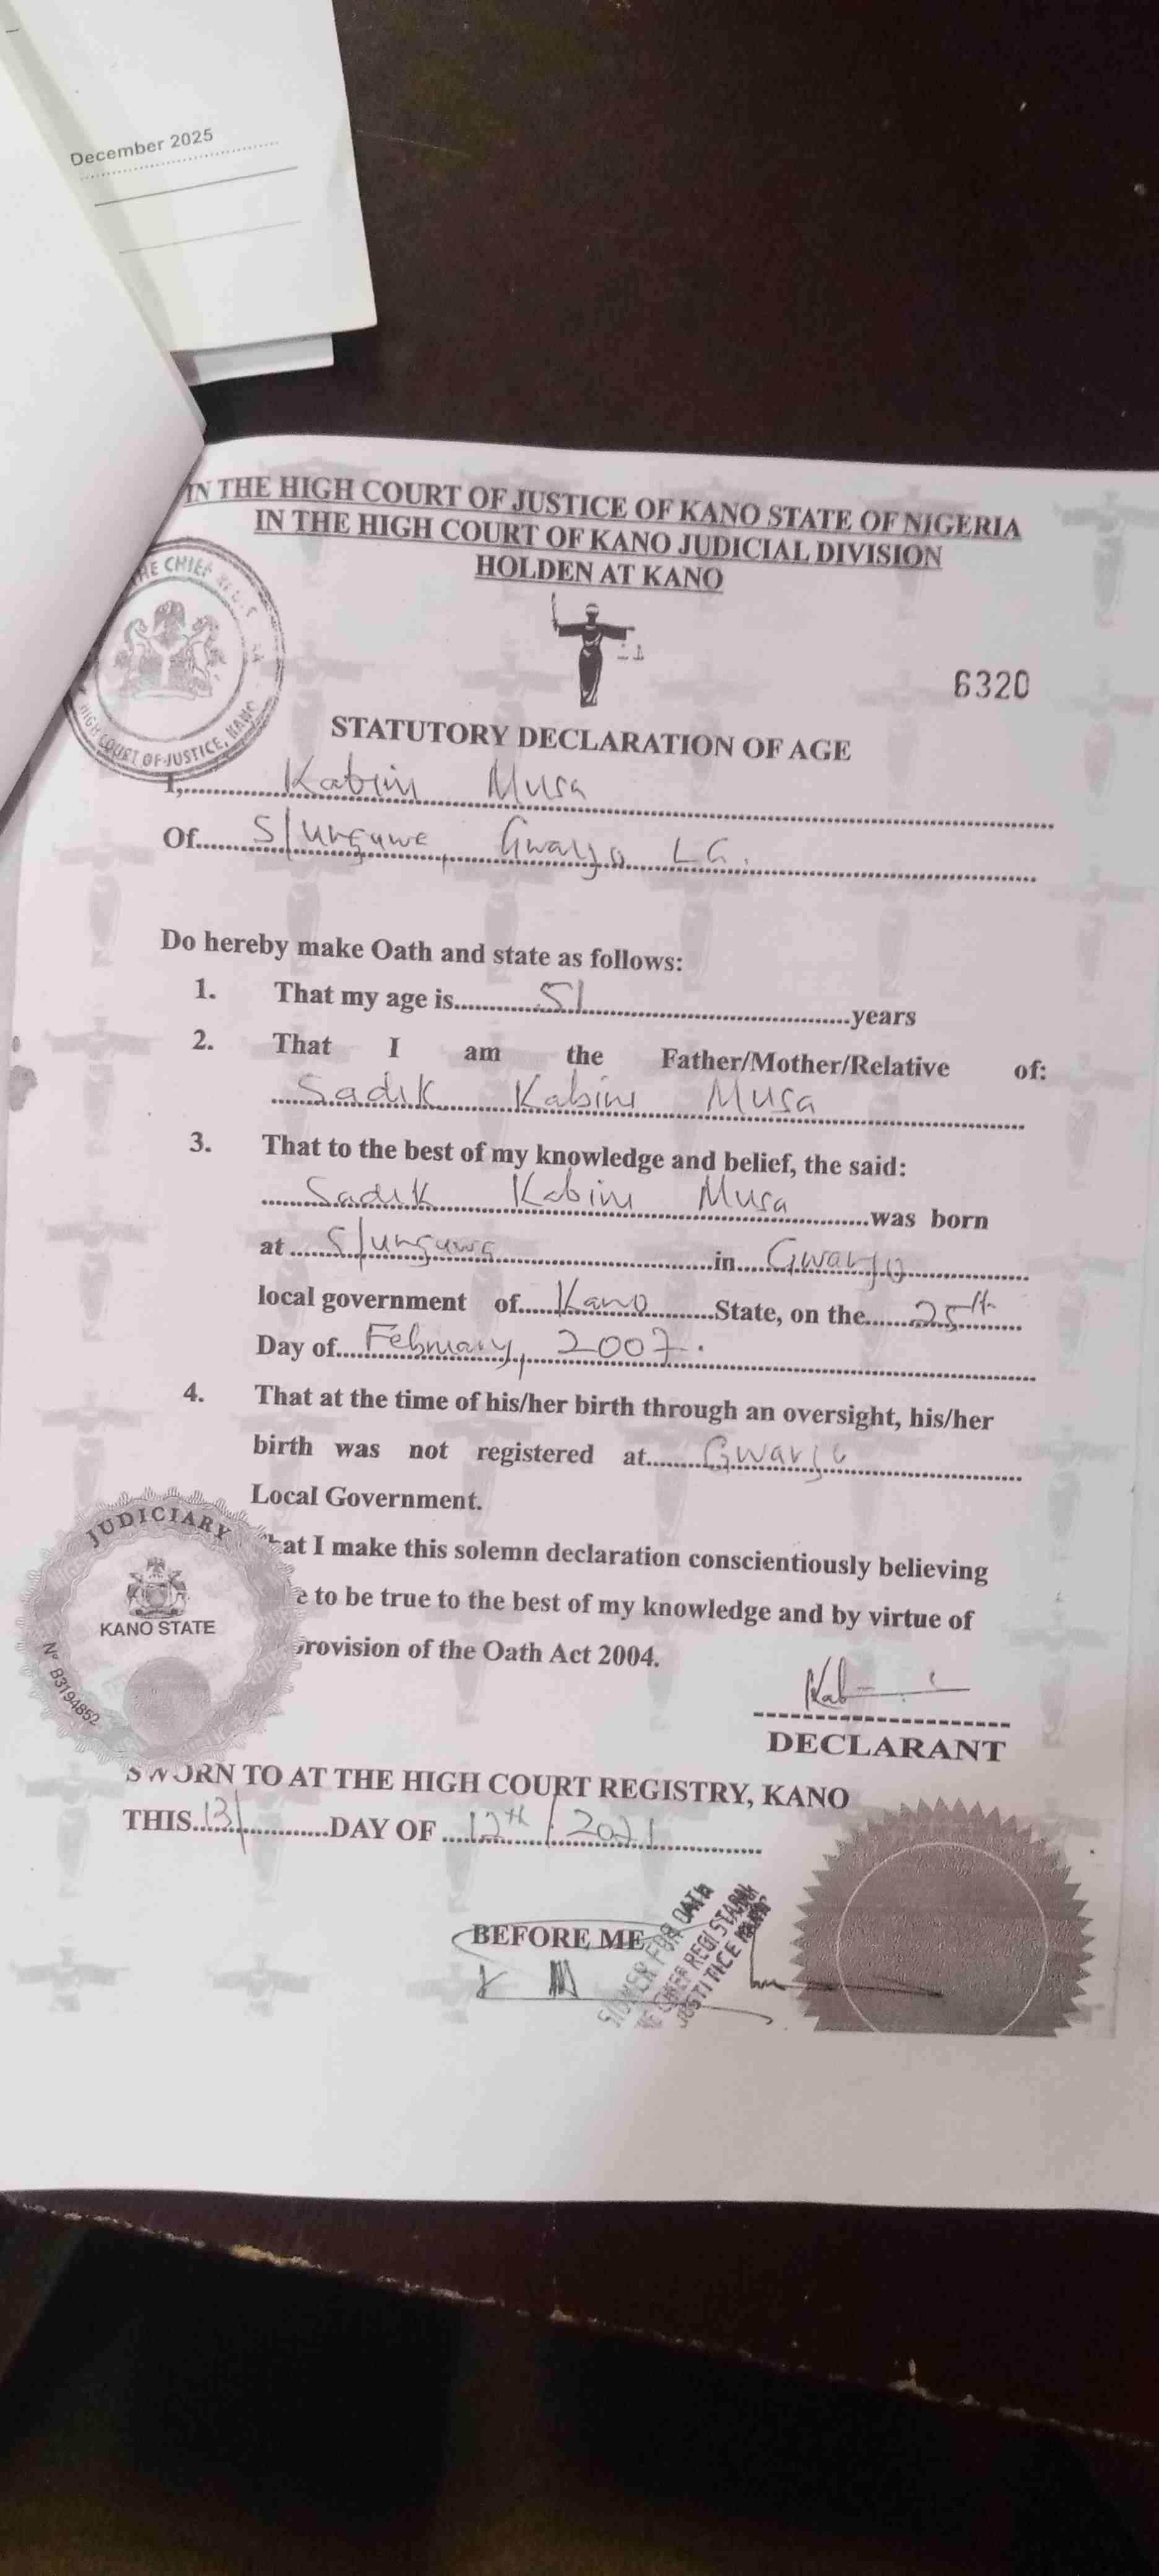 December 2025
IN THE HIGH COURT OF JUSTICE OF KANO STATE OF NIGERIA
IN THE HIGH COURT OF KANO JUDICIAL DIVISION
HOLDEN AT KANO
HE CHIEF
HIGH COURT OF JUSTICE, KANO
6320
STATUTORY DECLARATION OF AGE
I,.......... Kabiru Musa
Of..... S/unguwa, Gwarzo LG.
Do hereby make Oath and state as follows:
1. That my age is..........51..........years
2. That I am the Father/Mother/Relative of:
Sadik Kabiru Musa
3. That to the best of my knowledge and belief, the said:
Sadik Kabiru Musa ..........was born
at..... S/unguwa ..........in..... Gwarzo
local government of..... Kano ..........State, on the..... 25th
Day of..... February, 2007.
4. That at the time of his/her birth through an oversight, his/her
birth was not registered at..... Gwarzo
Local Government.
hat I make this solemn declaration conscientiously believing
e to be true to the best of my knowledge and by virtue of
provision of the Oath Act 2004.
JUDICIARY
KANO STATE
Nº B3194852
DECLARANT
SWORN TO AT THE HIGH COURT REGISTRY, KANO
THIS..... 13/ ..........DAY OF ..... 12th / 2021
BEFORE ME
FOR OATH
CHIEF REGISTRAR